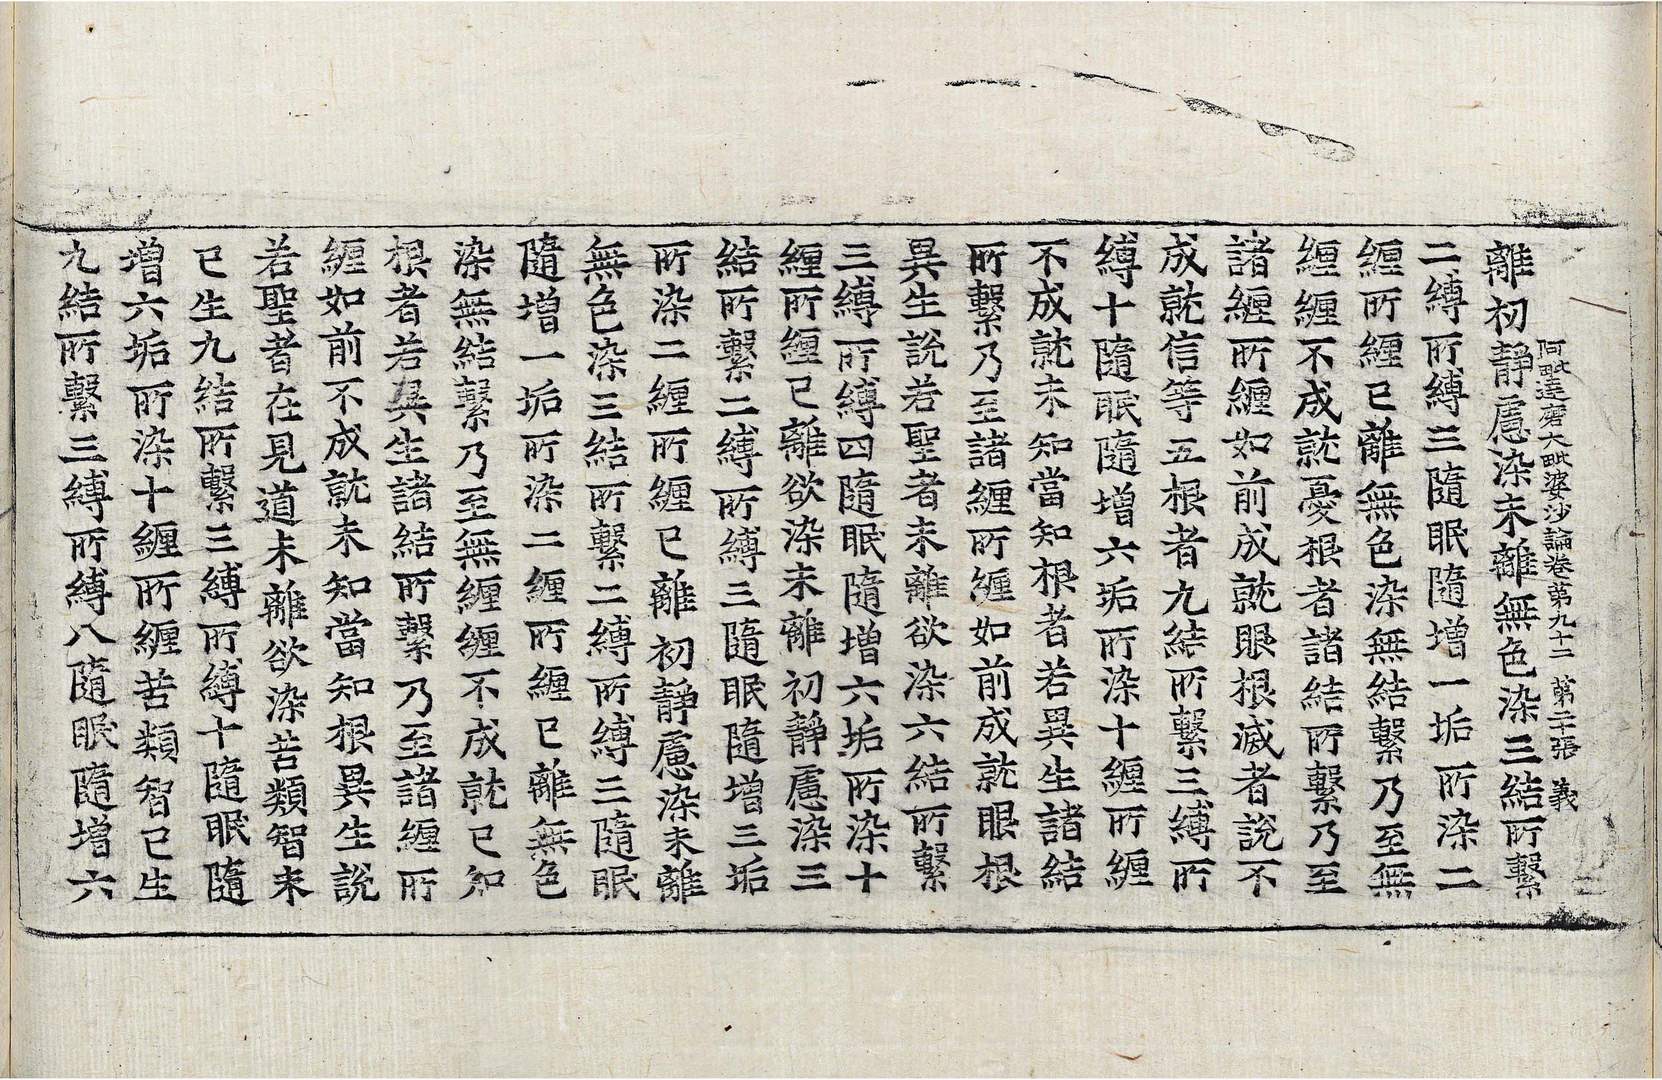 阿毗達磨大毗婆沙論卷第九十二 第二十張 義
離初靜慮染未離無色染三結所繫
二縛所縛三隨眠隨增一垢所染二
纏所纏已離無色染無結繫乃至無
纏纏不成就憂根者諸結所繫乃至
諸纏所纏如前成就眼根滅者說不
成就信等五根者九結所繫三縛所
縛十隨眠隨增六垢所染十纏所纏
不成就未知當知根者若異生諸結
所繫乃至諸纏所纏如前成就眼根
異生說若聖者未離欲染六結所繫
三縛所縛四隨眠隨增六垢所染十
纏所纏已離欲染未離初靜慮染三
結所繫二縛所縛三隨眠隨增三垢
所染二纏所纏已離初靜慮染未離
無色染三結所繫二縛所縛三隨眠
隨增一垢所染二纏所纏已離無色
染無結繫乃至無纏纏不成就已知
根者若異生諸結所繫乃至諸纏所
纏如前不成就未知當知根異生說
若聖者在見道未離欲染苦類智未
已生九結所繫三縛所縛十隨眠隨
增六垢所染十纏所纏苦類智已生
九結所繫三縛所縛八隨眠隨增六